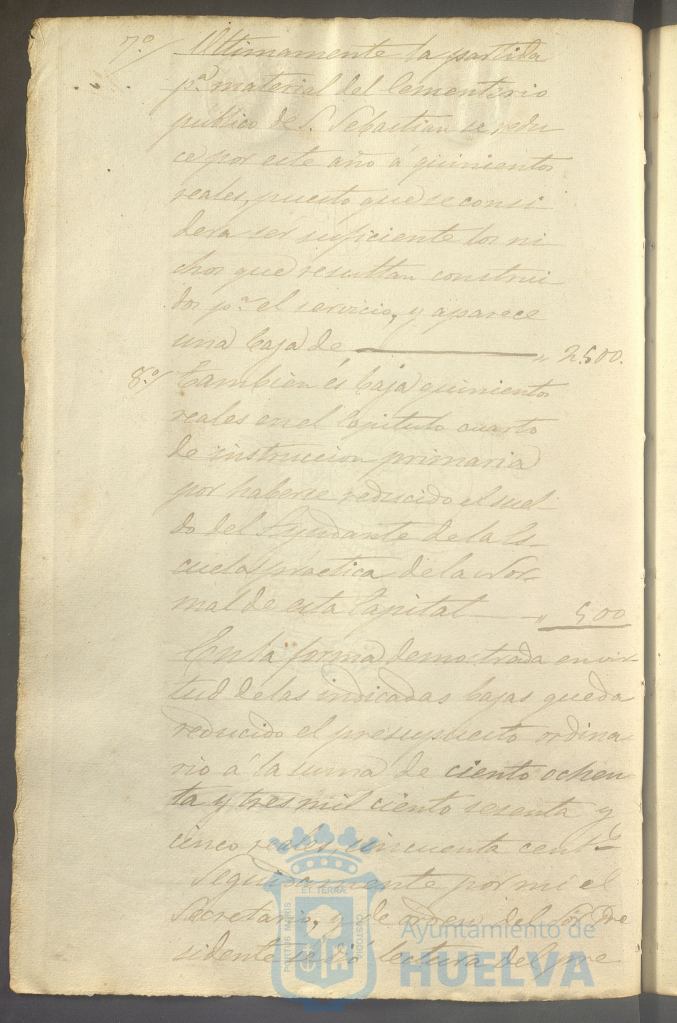 7.º/ Ultimamente la partida
pª material del Cementerio
público de S. Sebastian se redu
ce por este año á quinientos
reales, puesto que se consi
dera ser suficiente los ni
chos que resultan construi
dos pª el servicio, y aparece
una baja de " 2500.
8.º/ Tambien és baja quinientos
reales en el Capitulo cuarto
de instruccion primaria
por haberse reducido el suel
do del Ayudante de la Es
cuela práctica de la Nor-
mal de esta Capital " 500
En la forma demostrada en vir-
tud de las indicadas bajas queda
reducido el presupuesto ordina
rio á la suma de ciento ochen
ta y tres mil ciento sesenta y
cinco reales, cincuenta centº
Seguidamente por mi el
Secretario, y de orden del Sor Pre
sidente se dió lectura del pre
PORTUS MARIS
ET TERRÆ
CUSTODIA
Ayuntamiento de
HUELVA